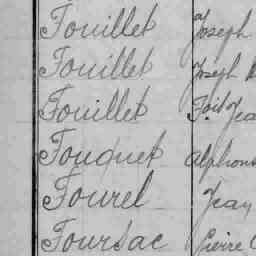 Fouillet Joseph
Fouillet Joseph
Fouillet
Fouquet Alphons
Fourel Jean
Foursac Pierre